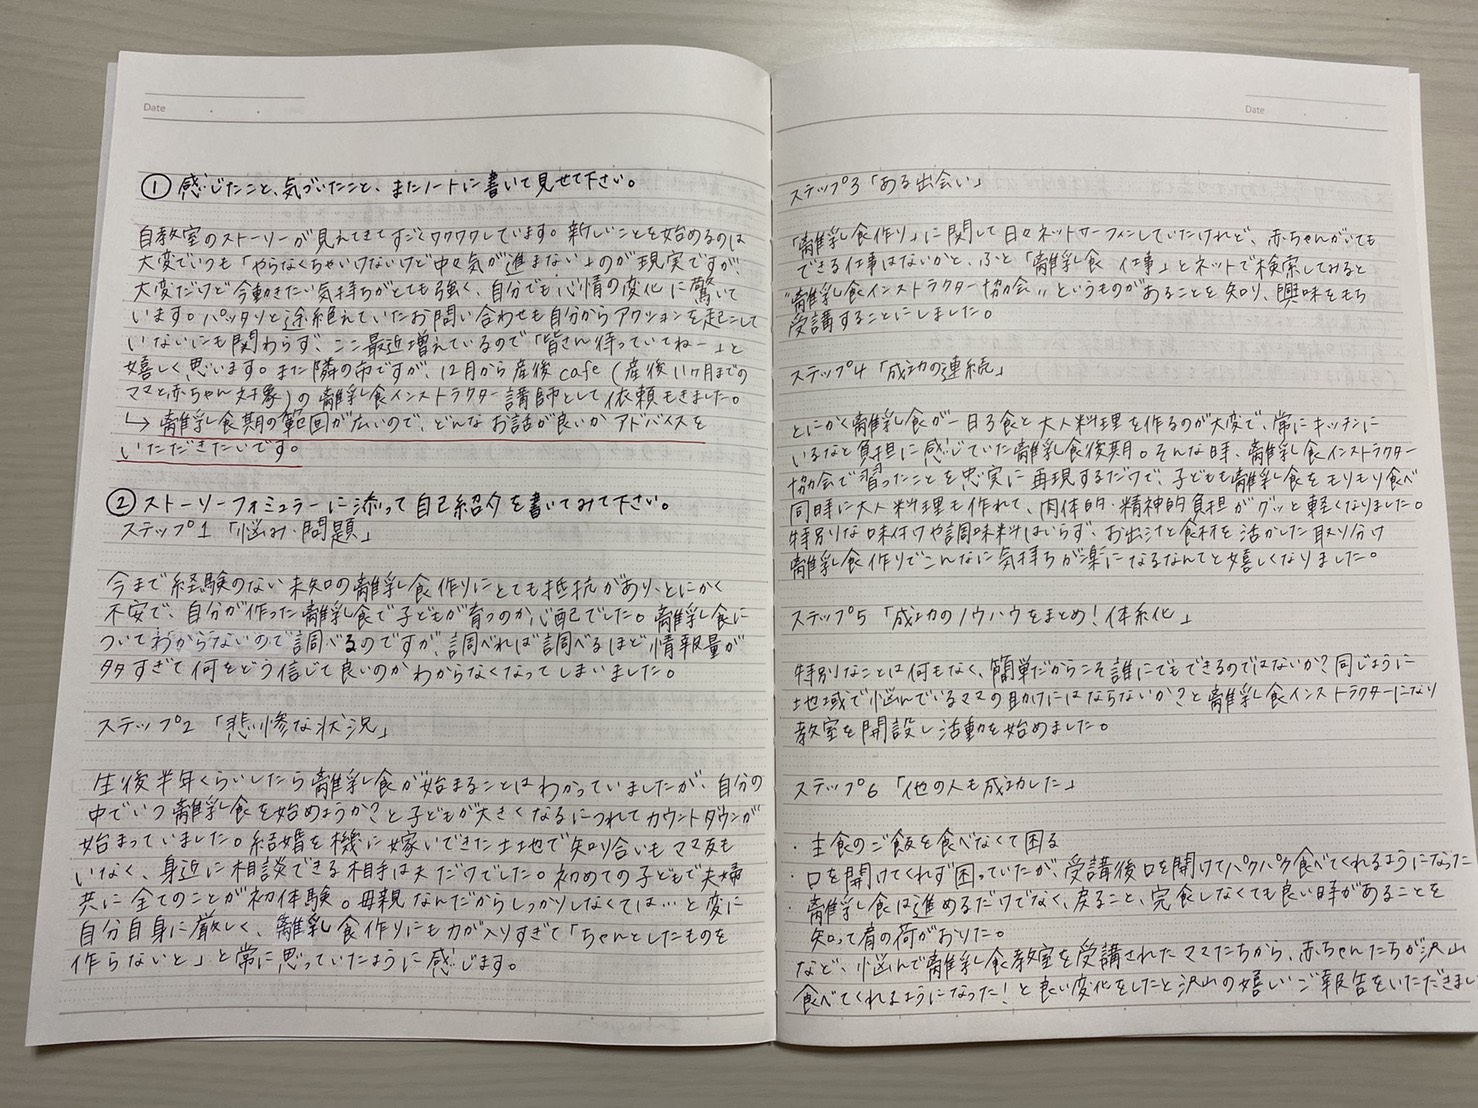 Date
① 感じたこと、気づいたこと、またノートに書いて見せて下さい。
自教室のストーリーが見えてきてすごくワクワクしています。新しいことを始めるのは
大変でいつも「やらなくちゃいけないけど中々気が進まない」のが現実ですが、
大変だけど今動きたい気持ちがとても強く、自分でも心情の変化に驚いて
います。パッタリと途絶えていたお問い合わせも自分からアクションを起こして
いないにも関わらず、ここ最近増えているので「皆さん待っていてねー」と
嬉しく思います。また隣の市ですが、12月から産後cafe(産後11ヶ月までの
ママと赤ちゃん対象)の離乳食インストラクター講師として依頼もきました。
↳ 離乳食期の範囲が広いので、どんなお話が良いかアドバイスを
いただきたいです。
② ストーリーフォミュラーに添って自己紹介を書いてみて下さい。
ステップ1「悩み・問題」
今まで経験のない未知の離乳食作りにとても抵抗があり、とにかく
不安で、自分が作った離乳食で子どもが育つのか心配でした。離乳食に
ついてわからないので調べるのですが、調べれば調べるほど情報量が
多すぎて何をどう信じて良いのかわからなくなってしまいました。
ステップ2「悲惨な状況」
生後半年くらいしたら離乳食が始まることはわかっていましたが、自分の
中でいつ離乳食を始めようか?と子どもが大きくなるにつれてカウントダウンが
始まっていました。結婚を機に嫁いできた土地で知り合いもママ友も
いなく、身近に相談できる相手は夫だけでした。初めての子どもで夫婦
共に全てのことが初体験。母親なんだからしっかりしなくては…と変に
自分自身に厳しく、離乳食作りにも力が入りすぎて「ちゃんとしたものを
作らないと」と常に思っていたように感じます。
Date
ステップ3「ある出会い」
「離乳食作り」に関して日々ネットサーフィンしていたけれど、赤ちゃんがいても
できる仕事はないかと、ふと「離乳食 仕事」とネットで検索してみると
"離乳食インストラクター協会"というものがあることを知り、興味をもち
受講することにしました。
ステップ4「成功の連続」
とにかく離乳食が一日3食と大人料理を作るのが大変で、常にキッチンに
いるなと負担に感じていた離乳食後期。そんな時、離乳食インストラクター
協会で習ったことを忠実に再現するだけで、子どもも離乳食をモリモリ食べ
同時に大人料理も作れて、肉体的・精神的負担がグッと軽くなりました。
特別な味付けや調味料はいらず、お出汁と食材を活かした取り分け
離乳食作りでこんなに気持ちが楽になるなんてと嬉しくなりました。
ステップ5「成功のノウハウをまとめ!体系化」
特別なことは何もなく、簡単だからこそ誰にでもできるのではないか?同じように
地域で悩んでいるママの助けにはならないか?と離乳食インストラクターになり
教室を開設し活動を始めました。
ステップ6「他の人も成功した」
・主食のご飯を食べなくて困る
・口を開けてくれず困っていたが、受講後口を開けてパクパク食べてくれるようになった
・離乳食は進めるだけでなく、戻ること、完食しなくても良い時があることを
知って肩の荷がおりた。
など、悩んで離乳食教室を受講されたママたちから、赤ちゃんたちが沢山
食べてくれるようになった!と良い変化をしたと沢山の嬉しいご報告をいただきまし